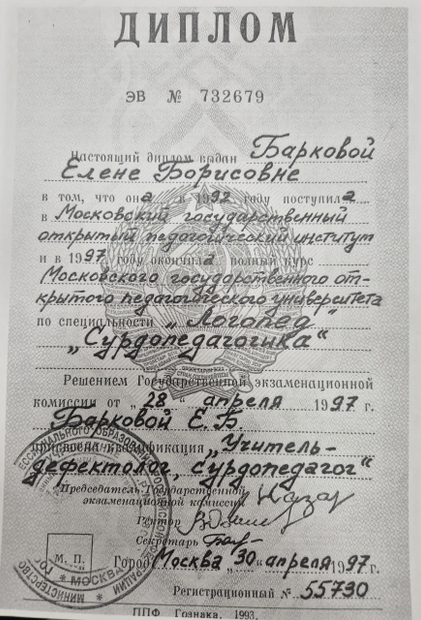 ДИПЛОМ
ЭВ № 732679
Настоящий диплом выдан Барковой
Елене Борисовне
в том, что она в 1992 году поступила
в Московский государственный
открытый педагогический институт
и в 1997 году окончила полный курс
Московского государственного от-
крытого педагогического университета
по специальности „Логопед"
„Сурдопедагогика“
Решением Государственной экзаменационной
комиссии от „28 апреля 1997 г.
Барковой Е. Б.
присвоена квалификация „Учитель-
дефектолог, сурдопедагог“
Председатель Государственной
экзаменационной комиссии
Ректор
Секретарь
М. П.
Город Москва „30" апреля 1997 г.
МОСКВА
Регистрационный № 55730
ППФ Гознака. 1993.